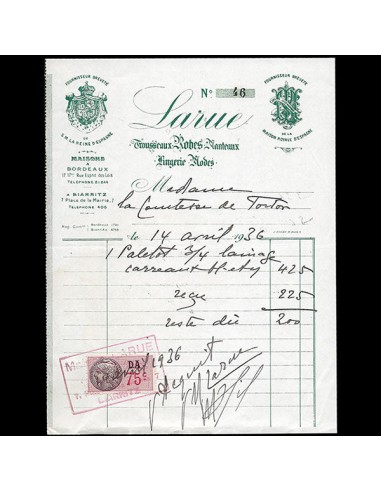 Nº 46
FOURNISSEUR BREVETÉ
DE
S.M. LA REINE D'ESPAGNE
FOURNISSEUR BREVETÉ
DE LA
MAISON ROYALE D'ESPAGNE
Larue
Trousseaux Robes Manteaux
Lingerie Modes
MAISONS
À
BORDEAUX
Rue Esprit des Lois
TELEPHONE
À BIARRITZ
(Place de la Mairie)
TELEPHONE
Madame
La Comtesse de
le 14 avril 1936
1 Paletot 3/4 lainage
carreaux 425
reçu 225
reste dû 200
LARUE
75c
BIARRITZ
1936
Acquit
Larue